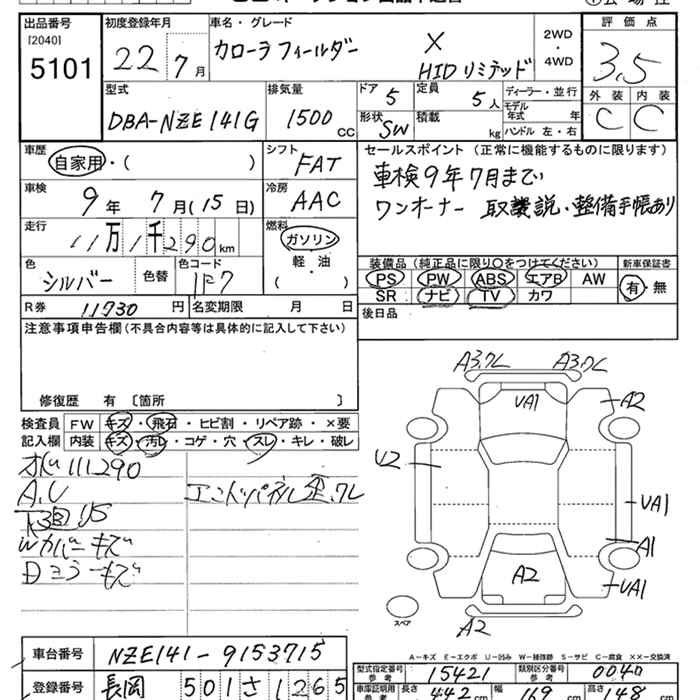 出品番号 初度登録年月 車名・グレード 2WD・4WD 評価点
[2040]
5101 22年7月 カローラフィールダー X HIDリミテッド 3.5
型式 排気量 ドア 5 定員 5人 ディーラー・並行 外装 内装
DBA-NZE141G 1500cc 形状 SW 積載 kg モデル年式 年 C C
ハンドル 左・右
車歴 自家用・( ) シフト FAT セールスポイント(正常に機能するものに限ります)
車検 9年7月(15日) 冷房 AAC 車検9年7月まで
ワンオーナー 取説・整備手帳あり
走行 11万1千290km 燃料 ガソリン 軽・油 ( )
色 シルバー 色替 色コード 1F7
装備品(純正品に限り○をつけてください) 新車保証書
PS PW ABS エアB AW 有・無
SR ナビ TV カワ
R券 11730円 名変期限 月 日 後日品
注意事項申告欄(不具合内容等は具体的に記入して下さい)
修復歴 有〔箇所 〕
検査員 FW キズ・飛石・ヒビ割・リペア跡・×要
記入欄 内装 キズ・汚レ・コゲ・穴・スレ・キレ・破レ
111290
A.U
下回りS
Wカバーキズ
Dミラーキズ
A3.ワレ A3.ワレ
VA1
A2
U2
VA1
A1
VA1
A2
A2
スペア
A-キズ E-エクボ U-凹み W-補修跡 S-サビ C-腐食 ××-交換済
車台番号 NZE141-9153715
登録番号 長岡 501 さ 1265
型式指定番号 参考 15421 類別区分番号 参考 0040
車庫証明用 参考 長さ 442cm 幅 169cm 高さ 148cm